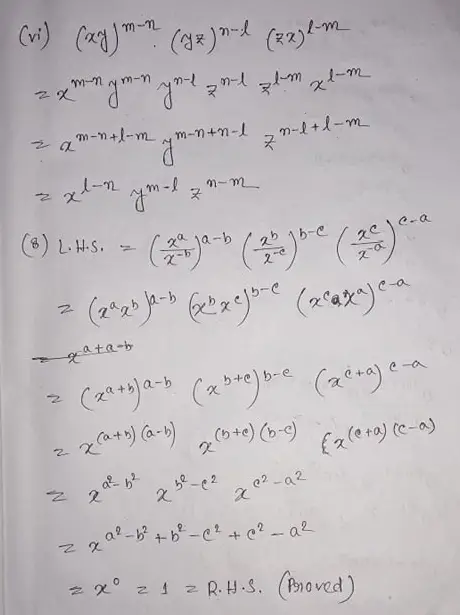 (vi) (xy)^{m-n} . (yz)^{n-l} (zx)^{l-m}
= x^{m-n} y^{m-n} y^{n-l} z^{n-l} z^{l-m} x^{l-m}
= a^{m-n+l-m} y^{m-n+n-l} z^{n-l+l-m}
= x^{l-n} y^{m-l} z^{n-m}
(8) L.H.S. = (x^a/x^{-b})^{a-b} (x^b/x^{-c})^{b-c} (x^c/x^{-a})^{c-a}
= (x^a x^b)^{a-b} (x^b x^c)^{b-c} (x^c x^a)^{c-a}
= x^{a+a-b}
= (x^{a+b})^{a-b} (x^{b+c})^{b-c} (x^{c+a})^{c-a}
= x^{(a+b)(a-b)} x^{(b+c)(b-c)} {x^{(c+a)(c-a)}
= x^{a²-b²} x^{b²-c²} x^{c²-a²}
= x^{a²-b²+b²-c²+c²-a²}
= x^0 = 1 = R.H.S. (Proved)